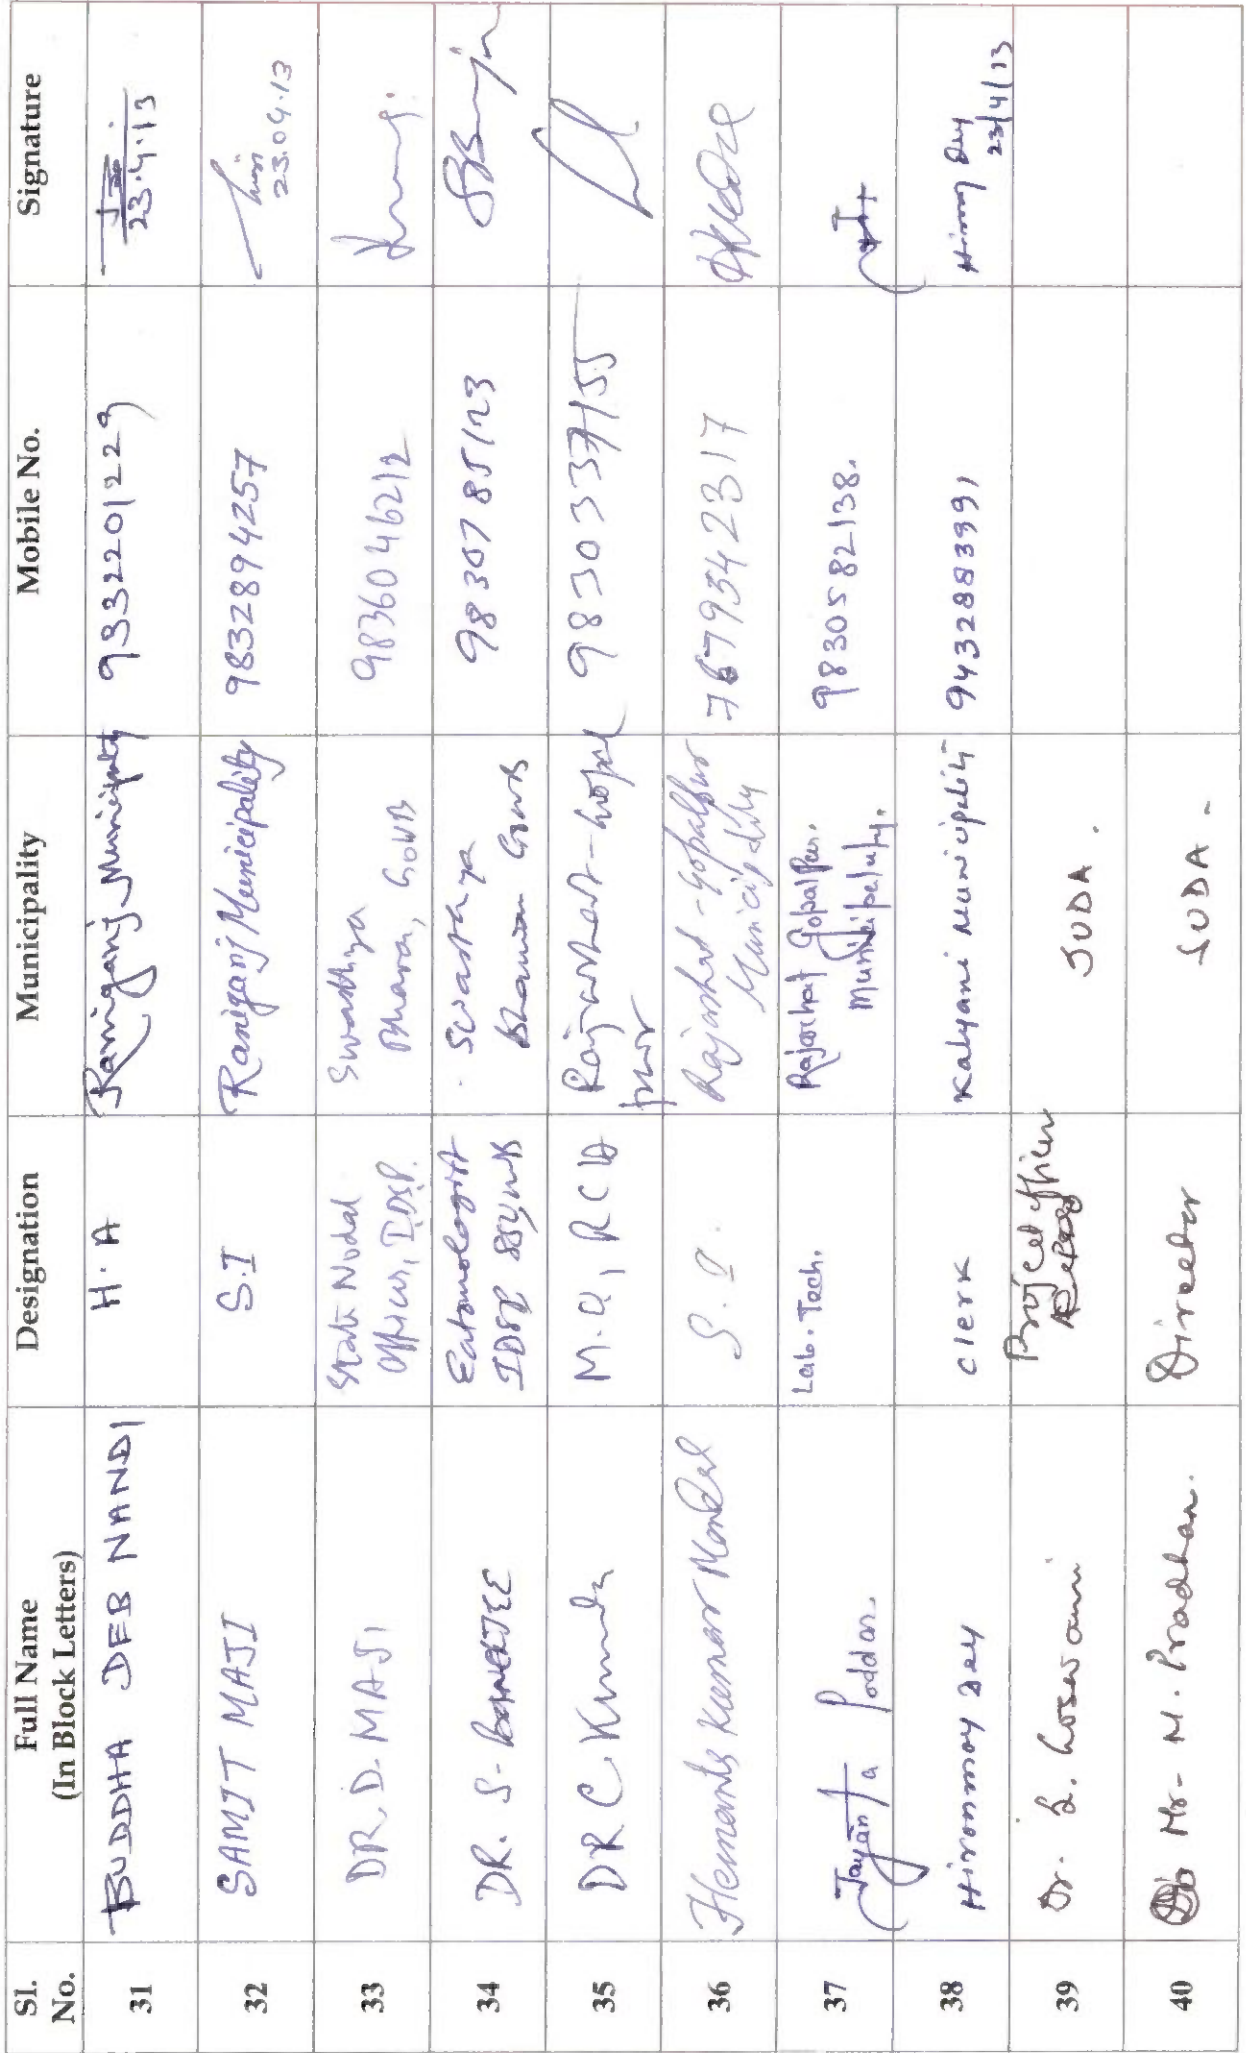 Sl. No. Full Name (In Block Letters) Designation Municipality Mobile No. Signature
31 BUDDHA DEB NANDI H.A Raniganj Municipality 9332201229 23.4.13
32 SAMIT MAJI S.I Raniganj Municipality 9832894257 23.04.13
33 DR. D. MAJI State Nodal Officer, IDSP. Swasthya Bhavan, GoWB 9836046212
34 DR. S. BANERJEE Entomologist IDSP Swastya Bhawan GoWB 9830785123
35 DR C. Kundu M.O, RCH Rajarhat-Gopalpur
36 Hemanta Kumar Mondal S.I. Rajarhat-Gopalpur Municipality 7679542317
37 Jayanta Poddar. Lab. Tech. Rajarhat Gopalpur. Municipality. 9830582138.
38 Hironmoy Dey Clerk Kalyani Municipality 9432888399, Hironmoy Dey 23/4/13
39 Dr. Goswami Project Officer SUDA.
40 Mr. M. Pradhan. Director SUDA.